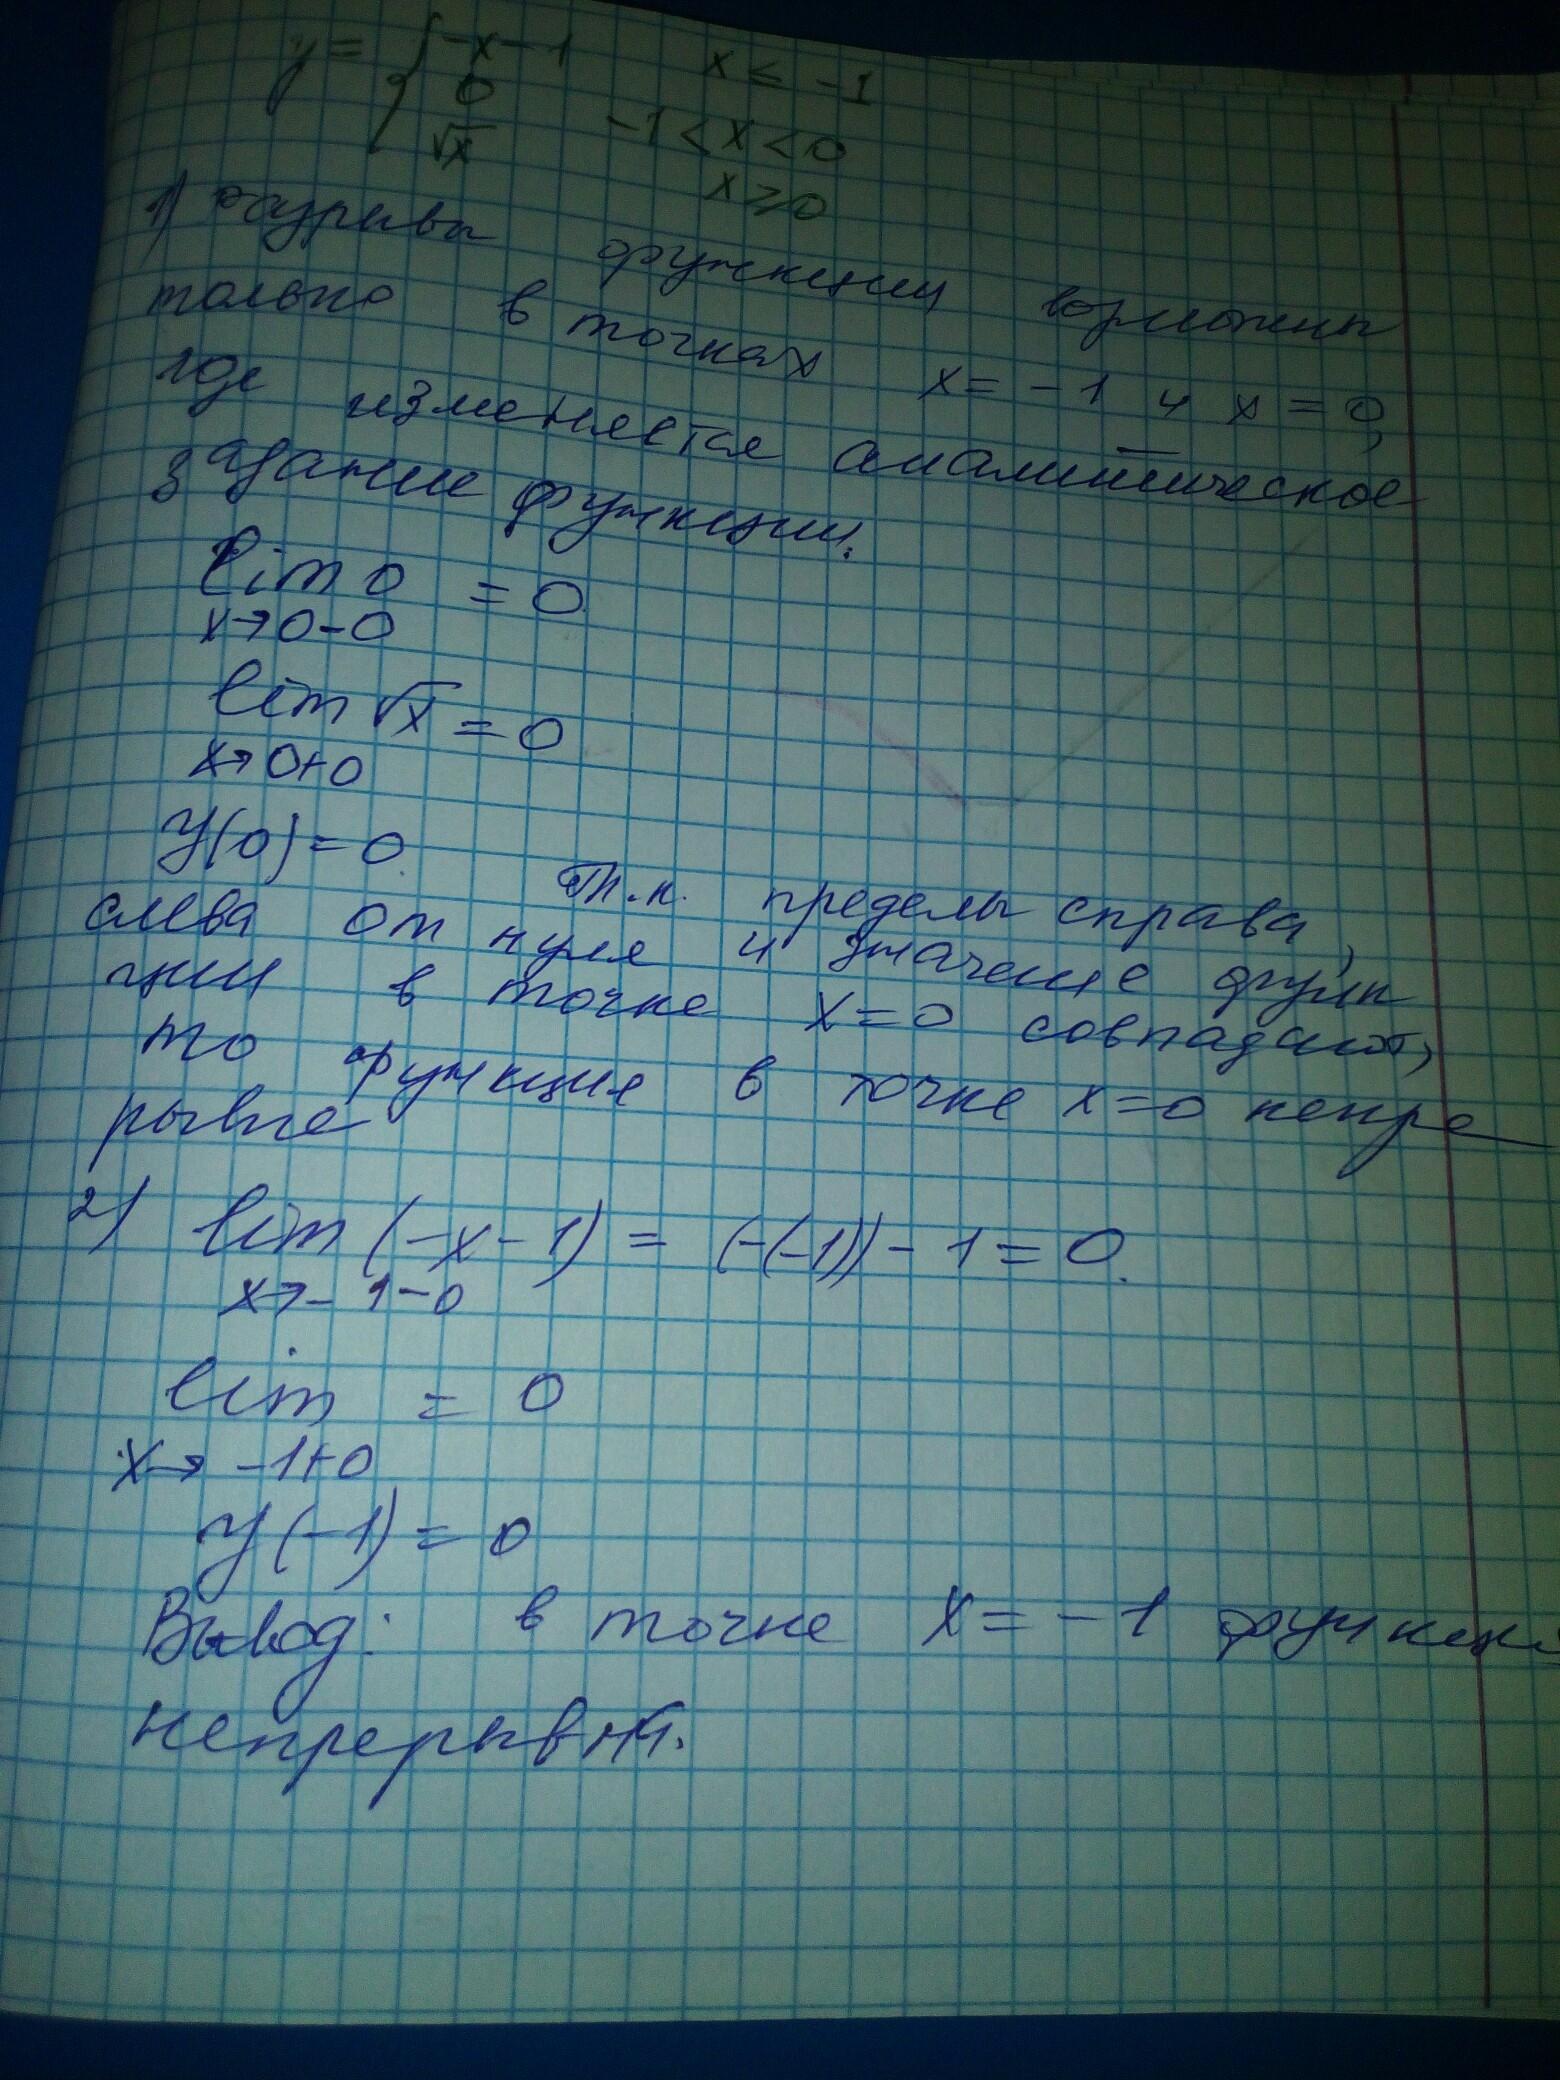 y = { -x-1 x ≤ -1
0 -1 < x < 0
√x x ≥ 0
1) разрывы функции возможны
только в точках x = -1 и x = 0,
где изменяется аналитическое
задание функции.
lim 0 = 0
x→0-0
lim √x = 0
x→0+0
y(0) = 0. Т.к. пределы справа,
слева от нуля и значение функ
ции в точке x=0 совпадают,
то функция в точке x=0 непре
рывна
2) lim (-x-1) = (-(-1))-1 = 0.
x→-1-0
lim = 0
x→ -1+0
y(-1) = 0
Вывод: в точке x = -1 функция
непрерывна.